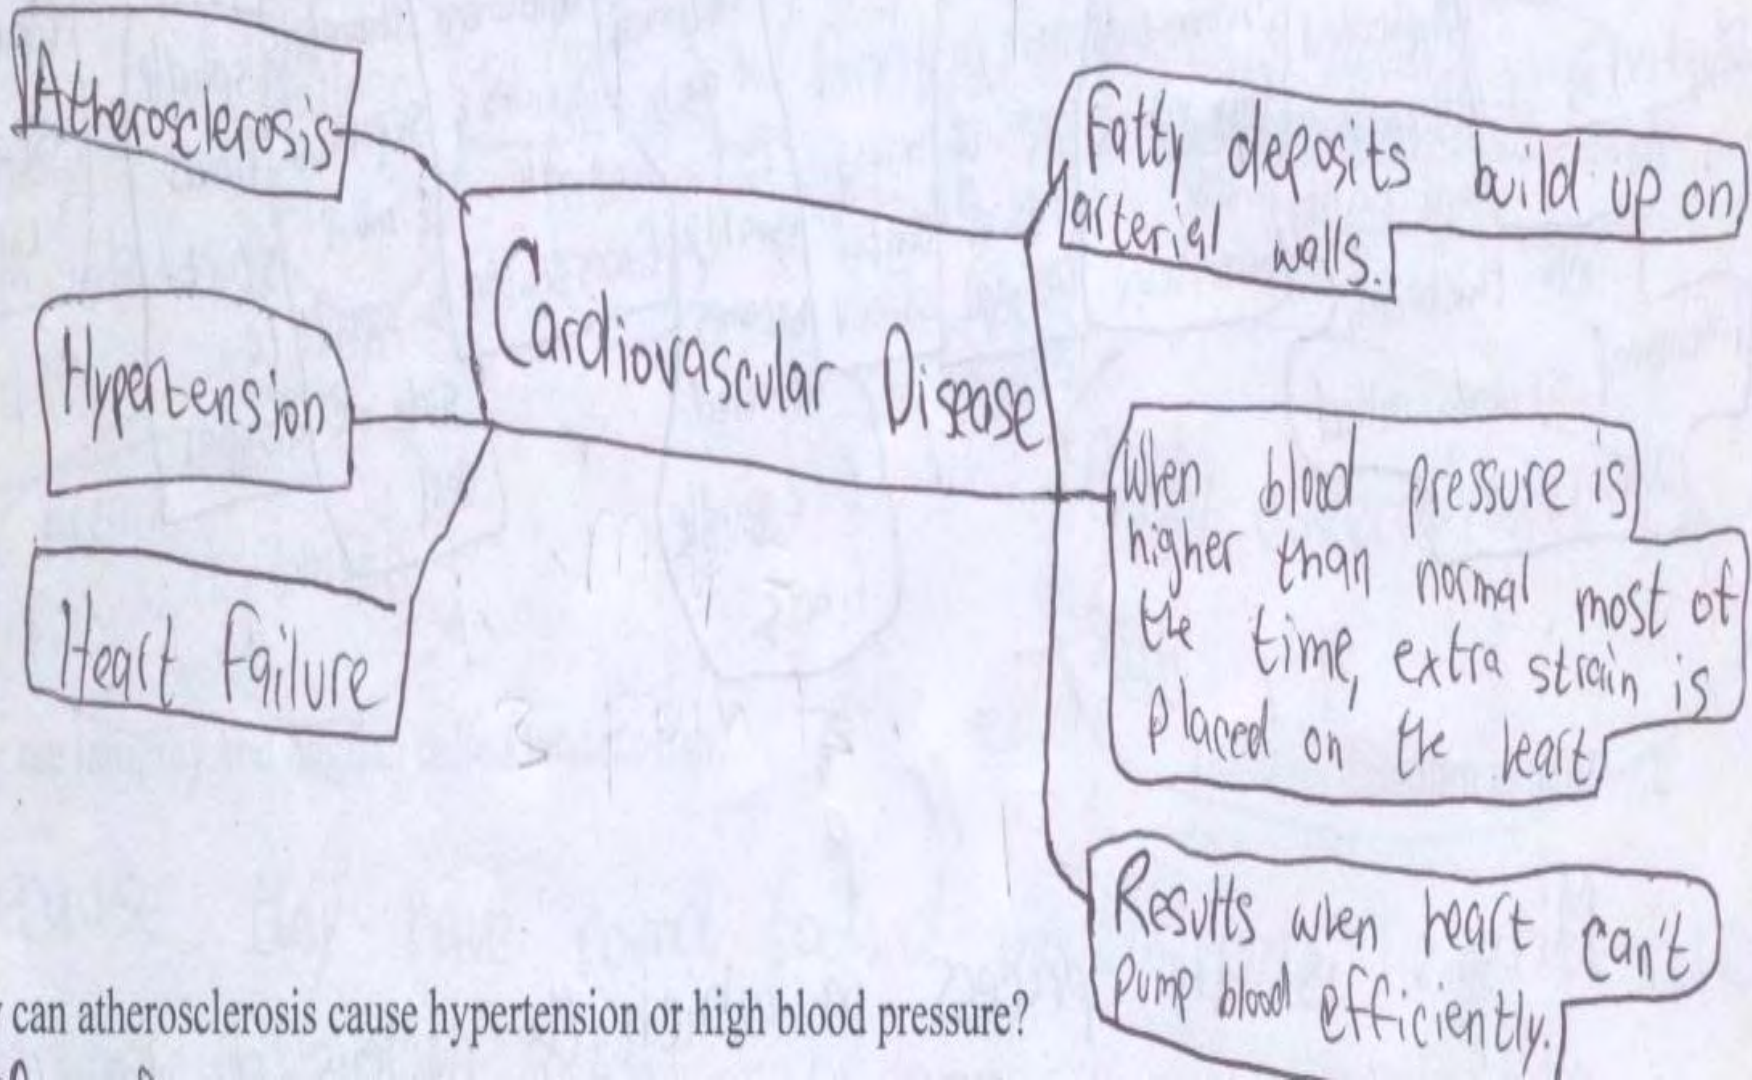 Atherosclerosis
Hypertension
Heart Failure
Cardiovascular Disease
Fatty deposits build up on
arterial walls.
When blood pressure is
higher than normal most of
the time, extra strain is
placed on the heart
Results when heart can't
pump blood efficiently.
can atherosclerosis cause hypertension or high blood pressure?